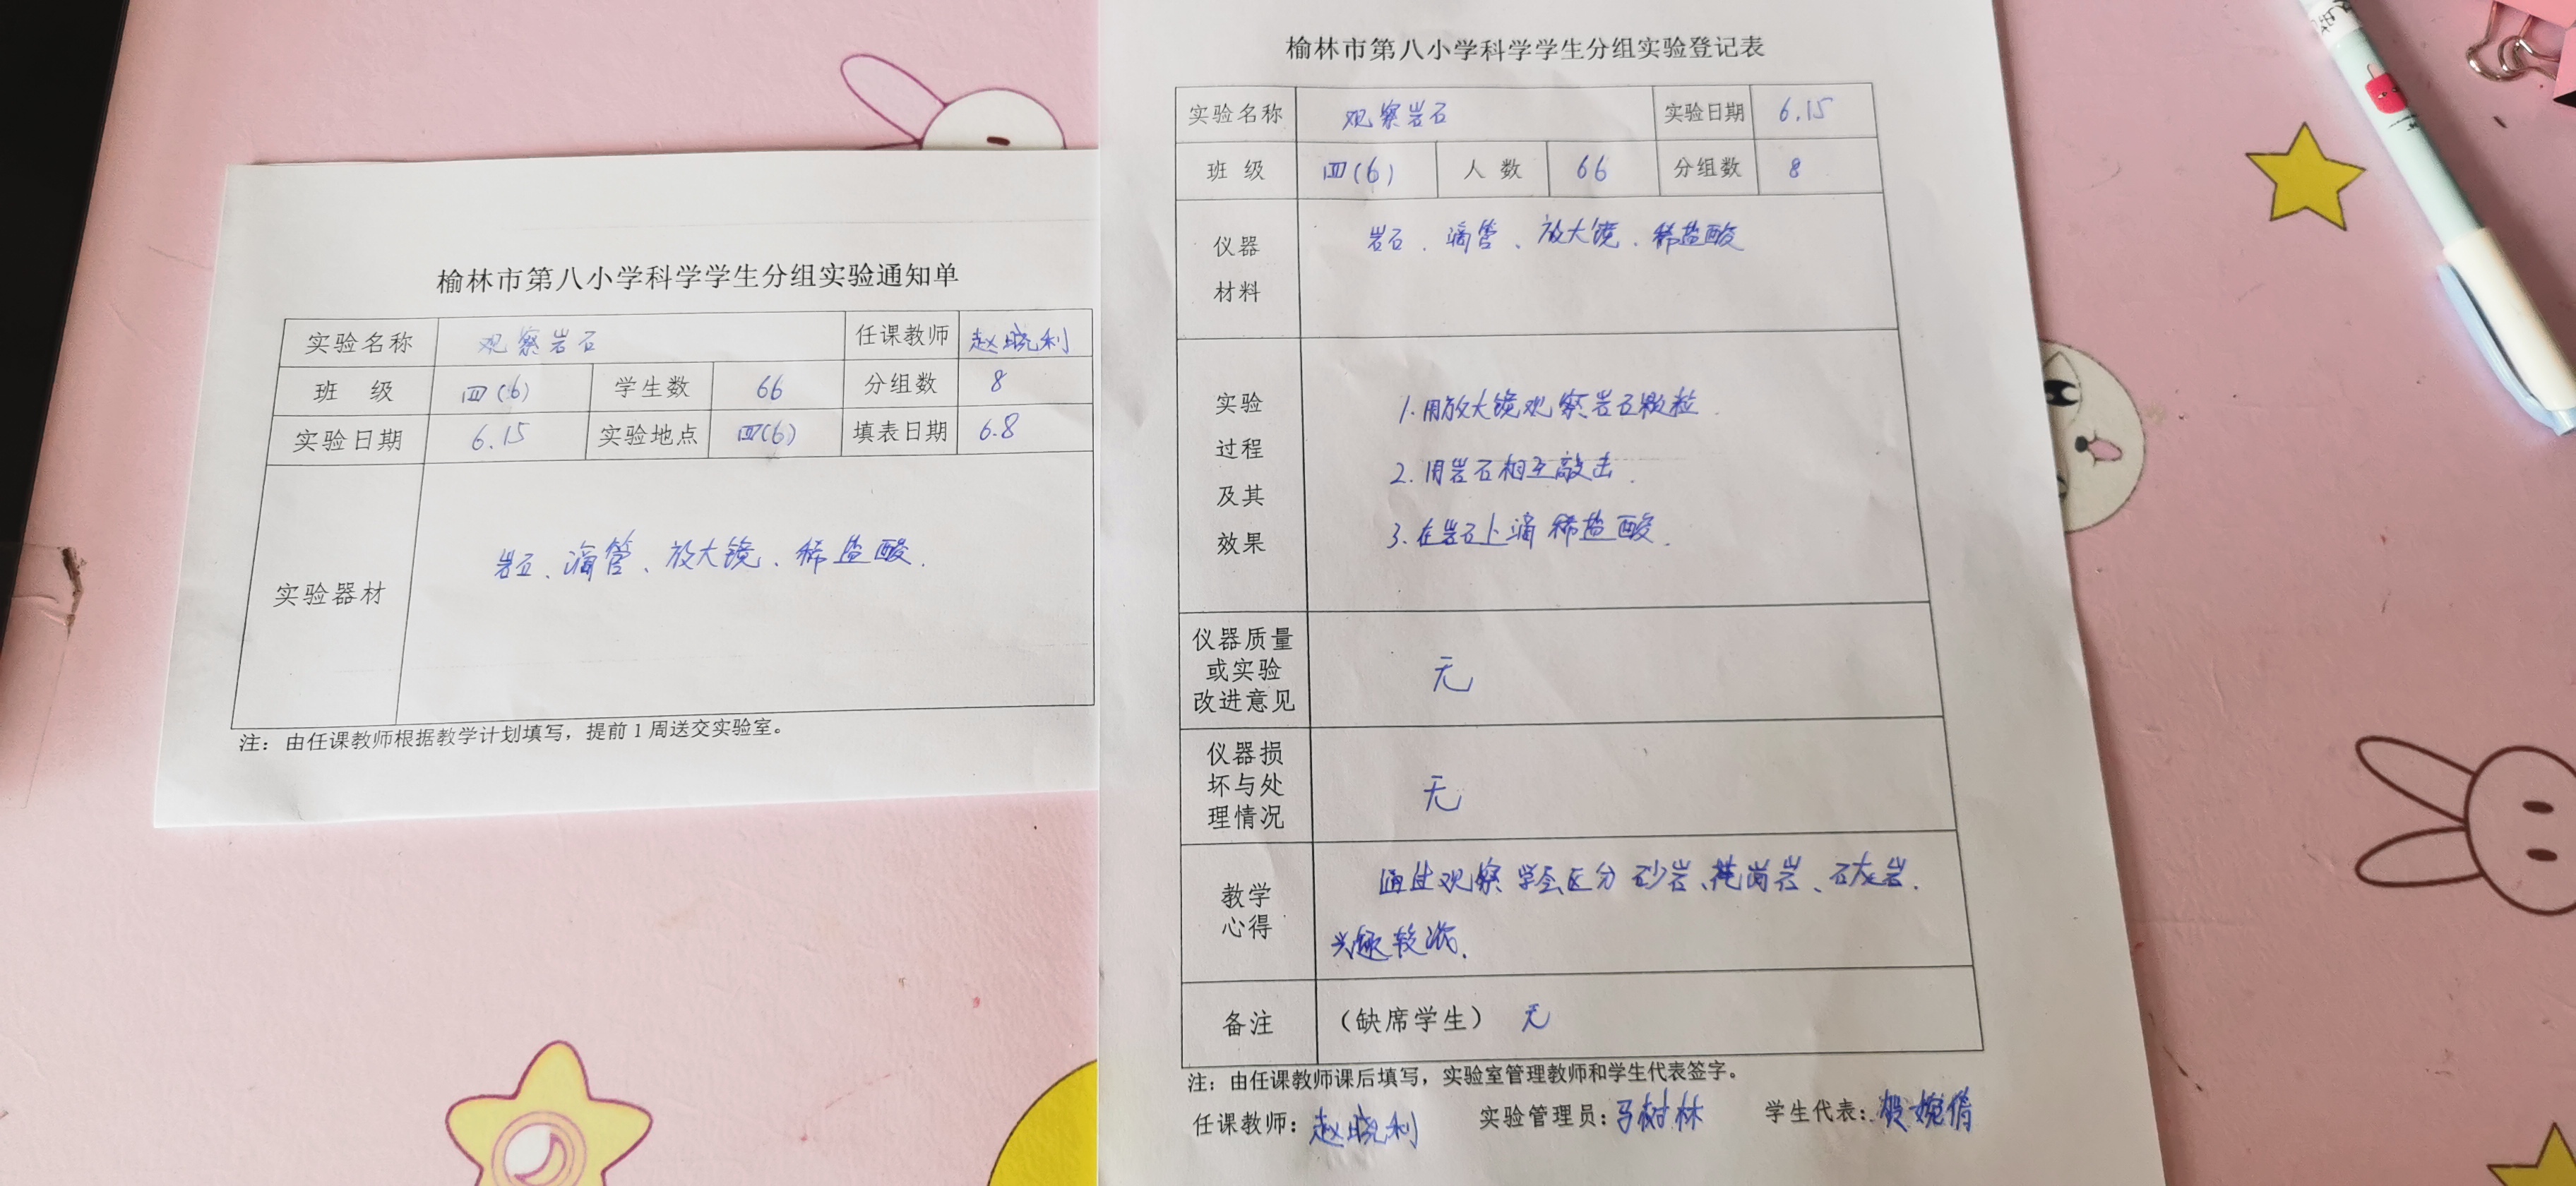 榆林市第八小学科学学生分组实验通知单
实验名称 观察岩石 任课教师 赵晓利
班 级 四(6) 学生数 66 分组数 8
实验日期 6.15 实验地点 四(6) 填表日期 6.8
实验器材 岩石、滴管、放大镜、稀盐酸.
注：由任课教师根据教学计划填写，提前1周送交实验室。
榆林市第八小学科学学生分组实验登记表
实验名称 观察岩石 实验日期 6.15
班 级 四(6) 人 数 66 分组数 8
仪器
材料
岩石、滴管、放大镜、稀盐酸
实验
过程
及其
效果
1.用放大镜观察岩石颗粒.
2.用岩石相互敲击.
3.在岩石上滴稀盐酸.
仪器质量
或实验
改进意见
无
仪器损
坏与处
理情况
无
教学
心得
通过观察学会区分砂岩、花岗岩、石灰岩.
兴趣较浓.
备注 （缺席学生） 无
注：由任课教师课后填写，实验室管理教师和学生代表签字。
任课教师：赵晓利 实验管理员：马树林 学生代表：